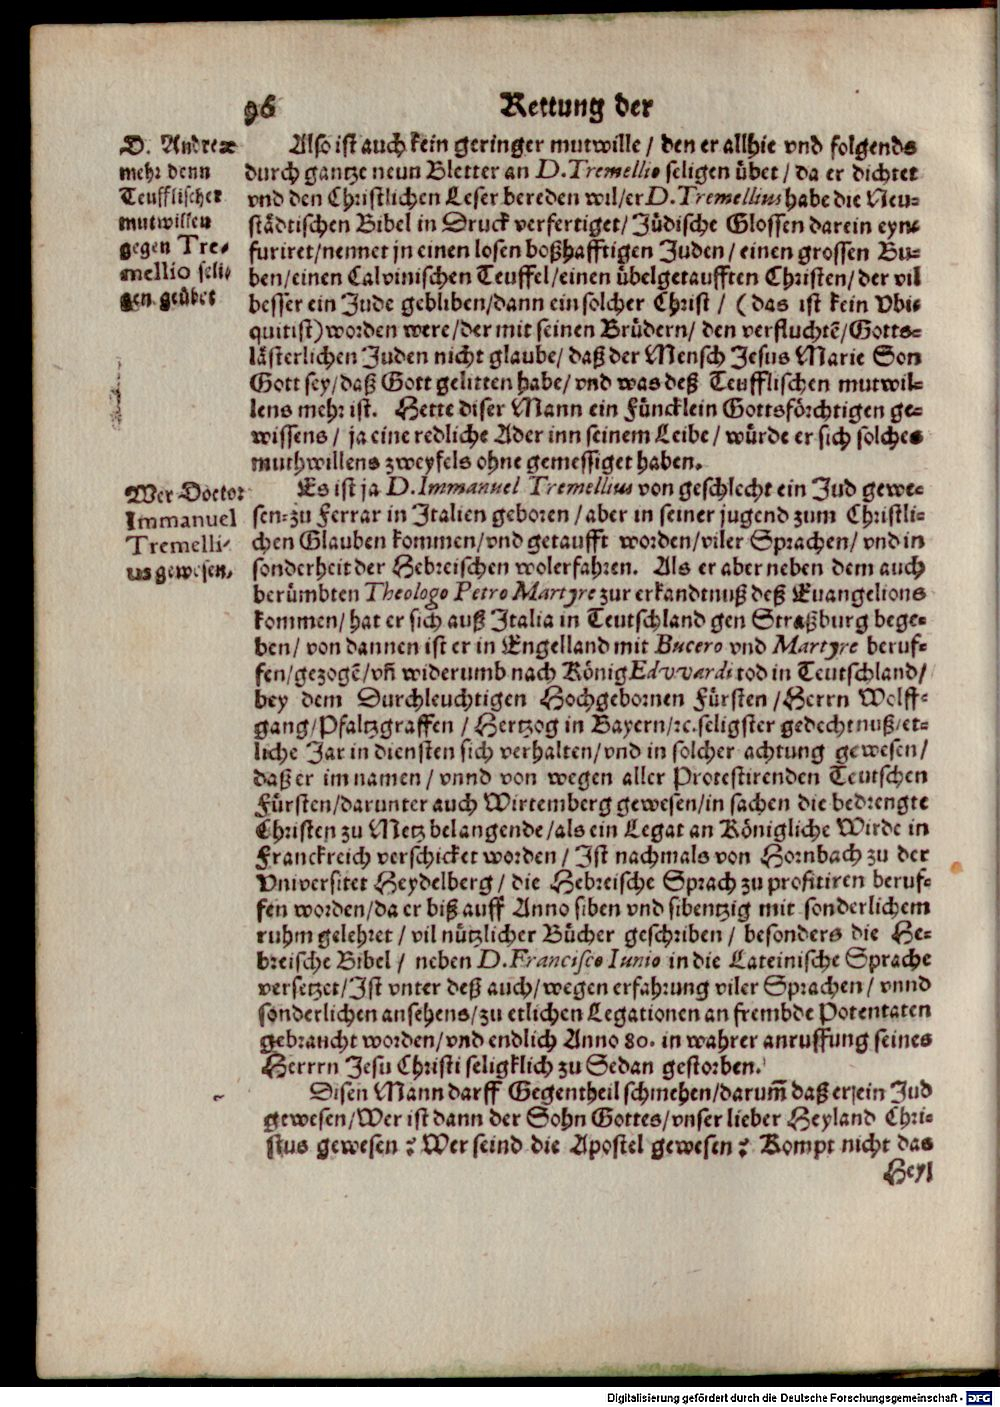 96 Rettung der
D. Andreæ
mehr denn
Teufflischer
mutwillen
gegen Tre-
mellio seli-
gen geübet
Also ist auch kein geringer mutwille / den er allhie vnd folgends
durch gantze neun Bletter an D. Tremellio seligen übet / da er dichtet
vnd den Christlichen Leser bereden wil/er D. Tremellius habe die Neu-
städtischen Bibel in Druck verfertiget/ Jüdische Glossen darein eyn-
furiret/nennet jn einen losen boßhafftigen Juden / einen grossen Bu-
ben/einen Calvinischen Teuffel/einen übelgetaufften Christen/ der vil
besser ein Jude gebliben/dann ein solcher Christ / (das ist kein Vbi-
quitist) worden were/der mit seinen Brüdern/ den verfluchtē/ Gotts-
lästerlichen Juden nicht glaube/ daß der Mensch Jesus Marie Son
Gott sey/daß Gott gelitten habe/ vnd was deß Teufflischen mutwil-
lens mehr ist. Hette diser Mann ein Füncklein Gottsförchtigen ge-
wissens / ja eine redliche Ader inn seinem Leibe / würde er sich solches
muthwillens zweyfels ohne gemessiget haben.
Wer Doctor
Immanuel
Tremelli-
us gewesen.
Es ist ja D. Immanuel Tremellius von geschlecht ein Jud gewe-
sen: zu Ferrar in Italien geboren / aber in seiner jugend zum Christli-
chen Glauben kommen/vnd getaufft worden/viler Sprachen/ vnd in
sonderheit der Hebreischen wolerfahren. Als er aber neben dem auch
berümbten Theologo Petro Martyre zur erkandtnuß deß Euangelions
kommen/ hat er sich auß Italia in Teutschland gen Straßburg bege-
ben/ von dannen ist er in Engelland mit Bucero vnd Martyre beruf-
fen/gezogē/ vñ widerumb nach König Edvvardi tod in Teutschland/
bey dem Durchleuchtigen Hochgebornen Fürsten / Herrn Wolff-
gang/Pfaltzgraffen / Hertzog in Bayern/ꝛc. seligster gedechtnuß/et-
liche Jar in diensten sich verhalten/vnd in solcher achtung gewesen/
daß er im namen / vnnd von wegen aller Protestirenden Teutschen
Fürsten/darunter auch Wirtemberg gewesen/in sachen die bedrengte
Christen zu Metz belangende/als ein Legat an Königliche Wirde in
Franckreich verschicket worden / Ist nachmals von Hornbach zu der
Vniversitet Heydelberg / die Hebreische Sprach zu profitiren beruf-
fen worden/da er biß auff Anno siben vnd sibentzig mit sonderlichem
ruhm gelehret / vil nützlicher Bücher geschriben / besonders die He-
breische Bibel / neben D. Francisco Iunio in die Lateinische Sprache
versetzet/Ist vnter deß auch/wegen erfahrung viler Sprachen/ vnnd
sonderlichen ansehens/zu etlichen Legationen an frembde Potentaten
gebraucht worden/vnd endlich Anno 80. in wahrer anruffung seines
Herrrn Jesu Christi seligklich zu Sedan gestorben.
Disen Mann darff Gegentheil schmehen/darum̃ daß er sein Jud
gewesen/Wer ist dann der Sohn Gottes/vnser lieber Heyland Chri-
stus gewesen? Wer seind die Apostel gewesen? Kompt nicht das
Heyl
Digitalisierung gefördert durch die Deutsche Forschungsgemeinschaft - DFG